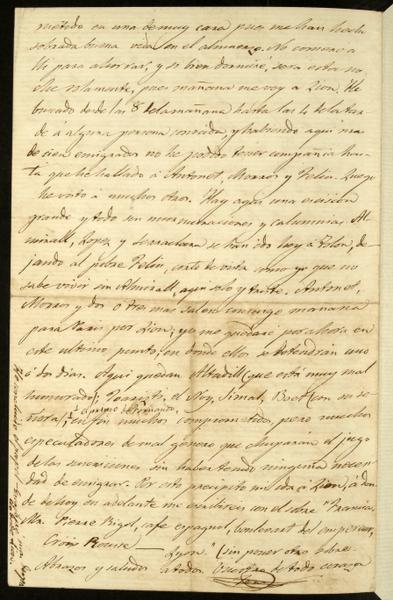 metido en una de muy cara pues me han hecho
sobrada buena vida en el almuerzo. No conviene a
lli para ahorrar, y si bien dormiré, será esta no
che solamente, pues mañana me voy a Lion. He
buscado desde las 8 de la mañana hasta las 4 de la tar
de á alguna persona conocida, y habiendo aquí mas
de cien emigrados no he podido tener compañia has
ta que he hallado á Antonet, Morros y Felin. Luego
he visto á muchos otros. Hay aquí una escision
grande y todo son murmuraciones y calumnias. Al
mirall, Lopez y Serraclara se han ido hoy á Tolon, de
jando al pobre Felin, corto de vista como yo que no
sabe vivir sin Almirall, aquí solo y triste. Antonet,
Morros y dos ó tres mas salen conmigo mañana
para Paris por Lion; yo me quedaré por ahora en
este ultimo punto, en donde ellos se detendrán uno
ó dos dias. Aquí quedan Altadill (que está muy mal
humorado), Toaristi, el Noy, Simal, Boet (con su se
ñora), el primo de Fernando,
en fin muchos comprometidos pero muchos
especuladores de mal género que chuparán el jugo
de las suscriciones sin haber tenido ninguna necesi
dad de emigrar. Por esto precipito mi ida á Lion, á don
de desde hoy en adelante me escribireis con el sobre "Francia,
Mr. Pierre Rigol, café espagnol, boulevart de l'empereur,
Croix Rousse — Lyon." (sin poner otro sobre.
Abrazos y saludos á todos. Vuestro de todo corazon